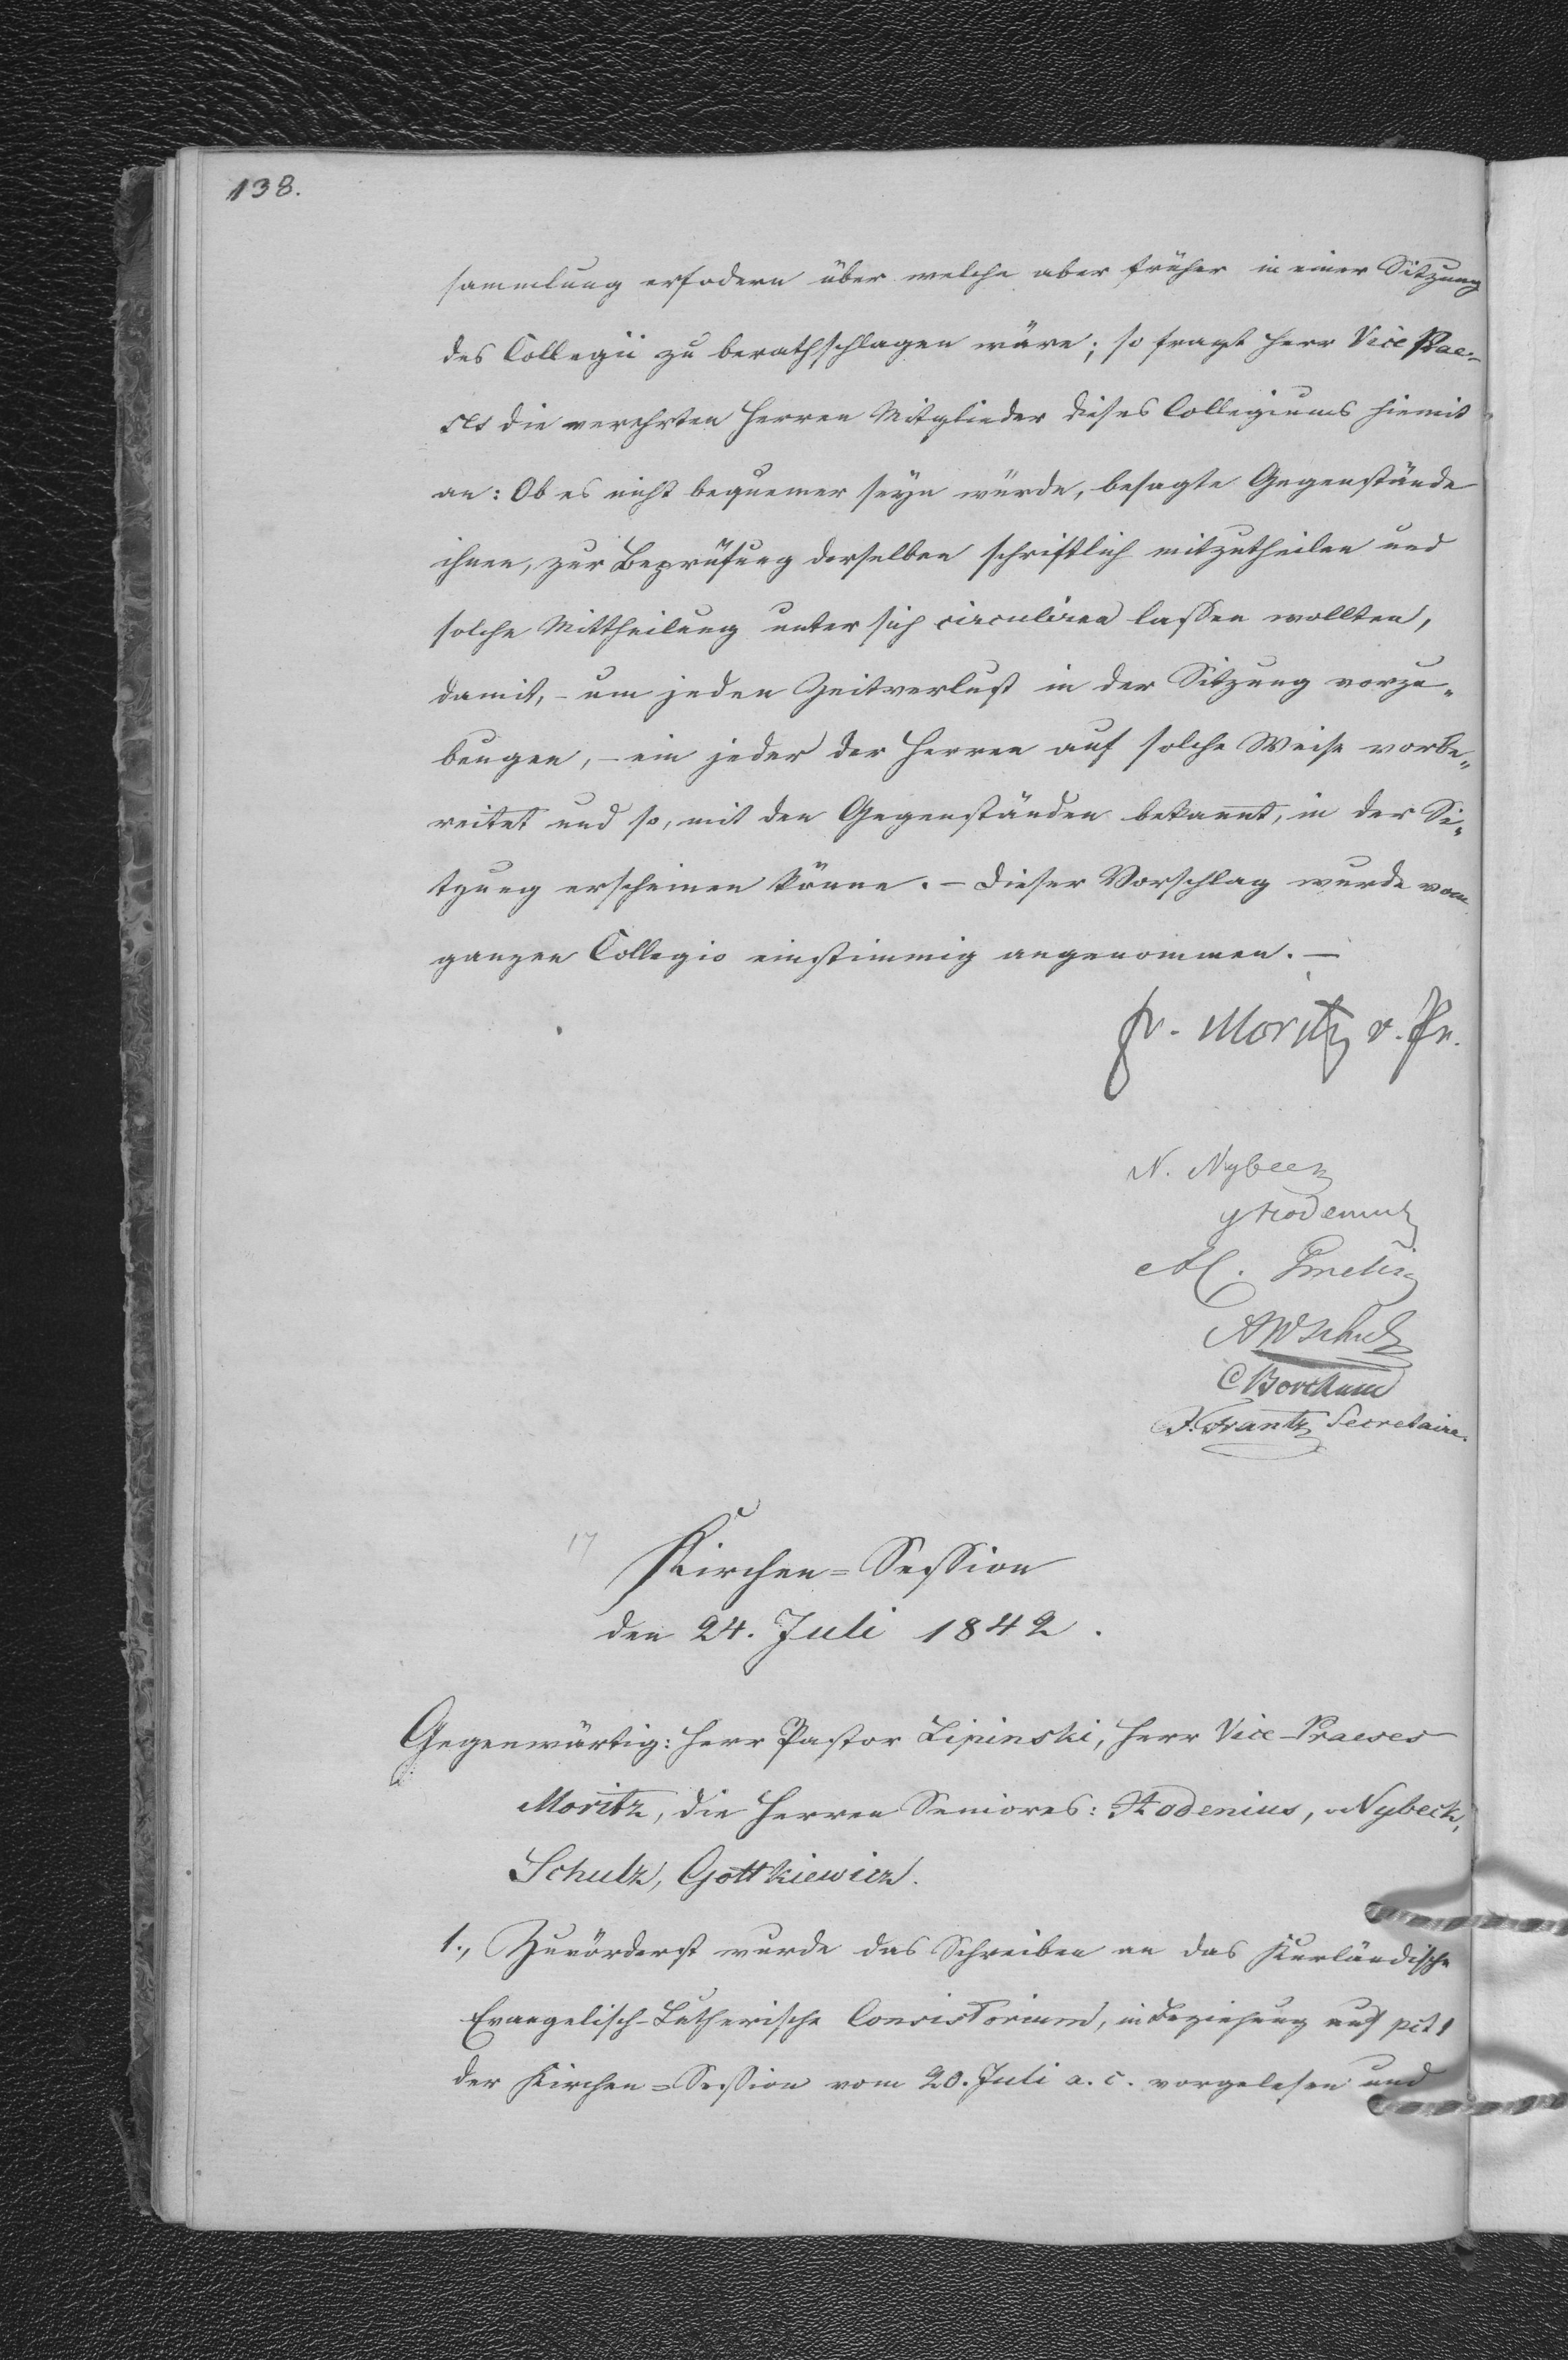 138.
sammlung erfodern über welche aber früher in einer Sitzung
des Collegii zu berathschlagen wäre; so fragt Herr Vice Prae-
ses die verehrten Herren Mitglieder dieses Collegiums hiemit
an: Ob es nicht bequemer seyn würde, besagte Gegenstände
ihnen, zur Beprüfung derselben schriftlich mitzutheilen und
solche Mittheilung unter sich circuliren lassen wollten,
damit, – um jeden Zeitverlust in der Sitzung vorzu-
beugen, – ein jeder der Herren auf solche Weise vorbe-
reitet und so, mit den Gegenständen bekannt, in der Si-
tzung erscheinen könne. – Dieser Vorschlag wurde vom
ganzen Collegio einstimmig angenommen. –
fr. Moritz v. Pr.
N. Nybeck
Al.
AWSchulz
F. Frantz Secretaire.
17
Kirchen=Session
den 24. Juli 1842.
Gegenwärtig: Herr Pastor Lipinski, Herr Vice-Praeses
Moritz, die Herren Seniores: Hodenius, Nybeck,
Schulz, Gottkiewicz.
1., Zuvörderst wurde das Schreiben an das Kurländische
Evangelisch-Lutherische Consistorium, in Beziehung auf pct 1
der Kirchen=Session vom 20. Juli a. c. vorgelesen und